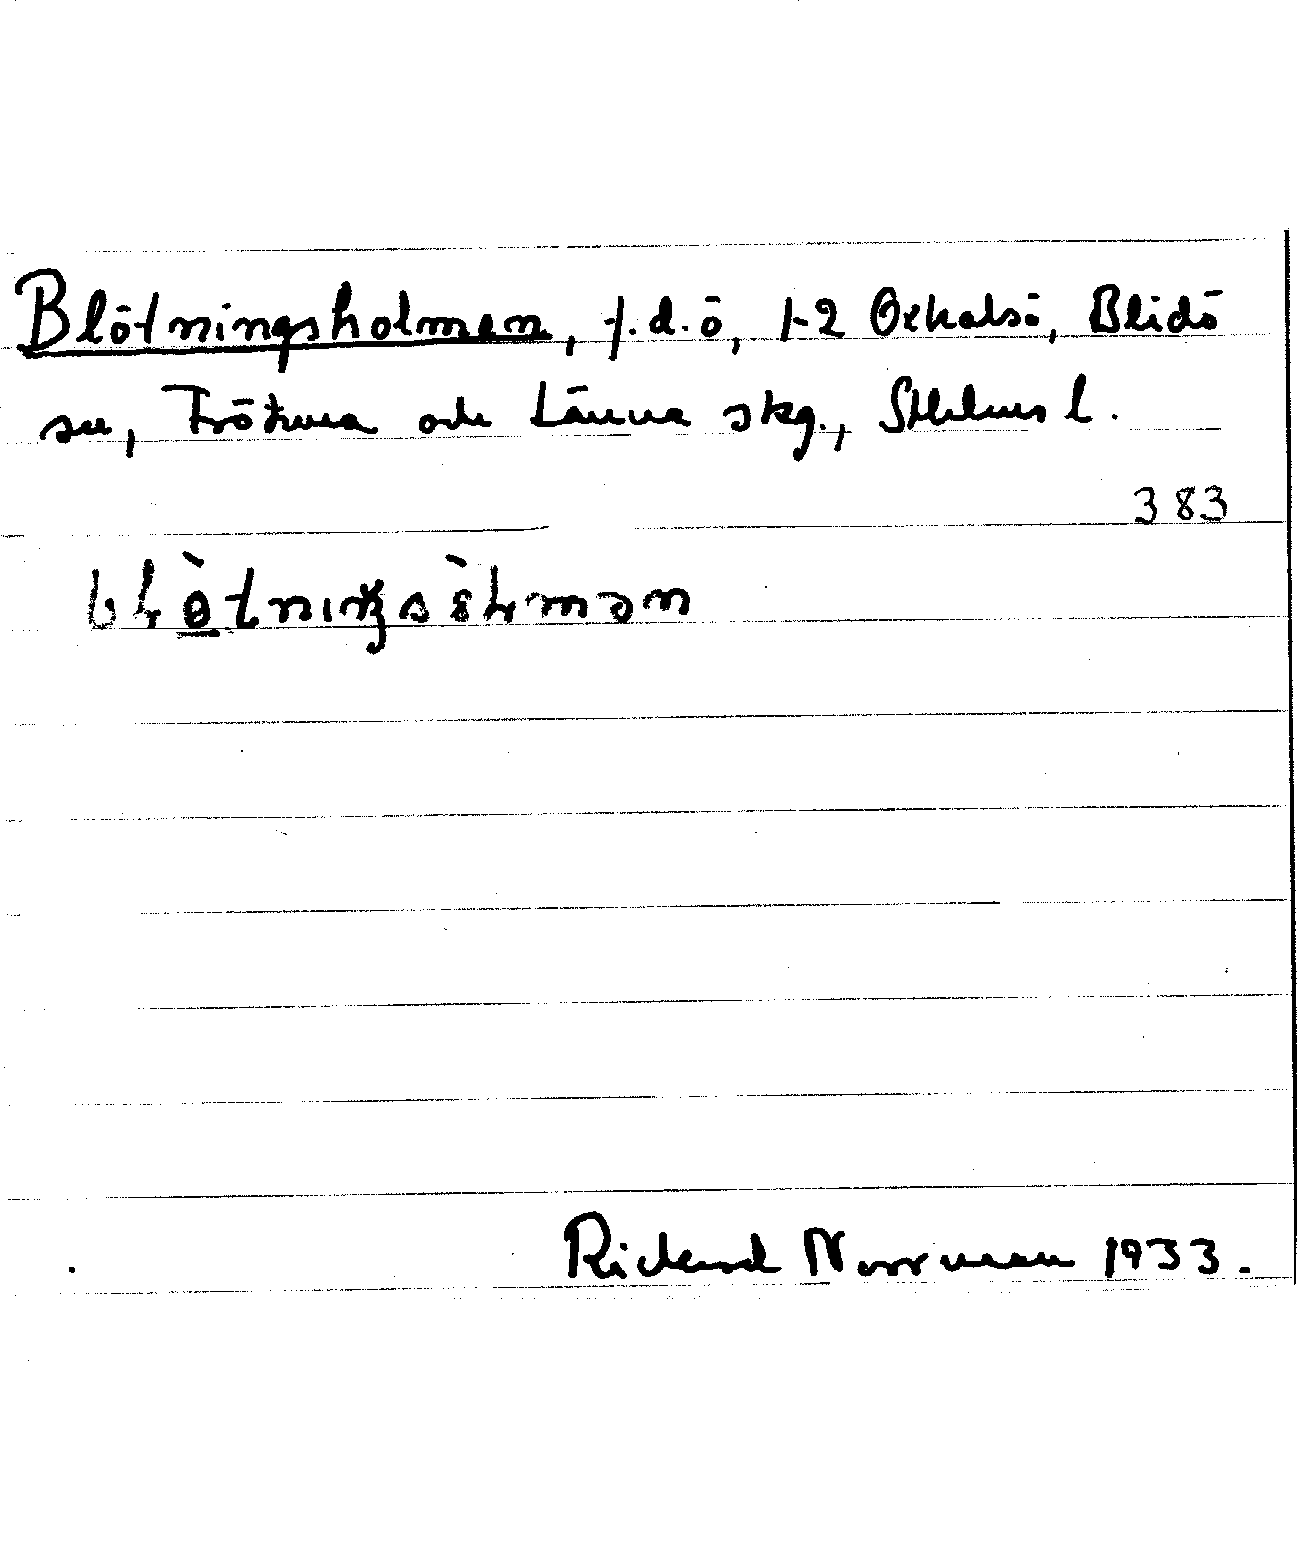 Blötningsholmen, f.d.ö, 1-2 Oxhalsö, Blidö
sn, Frötuna och Länna skg., Sthlms l.
383
blø̀tniŋsòlmən
Rickard Norrman 1933.